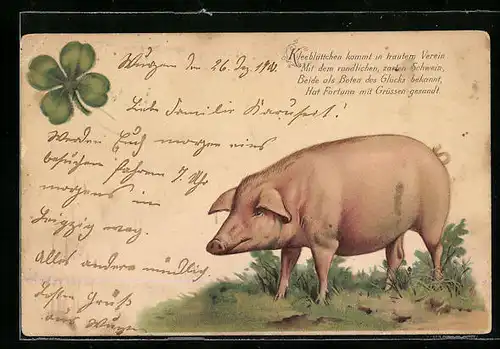 Kleeblättchen kommt in trautem Verein
Mit dem rundlichen, zarten Schwein,
Beide als Boten des Glücks bekannt,
Hat Fortuna mit Grüssen gesandt.
Wurzen den 26. Dez.
Liebe Familie
Werden Euch morgen
besuchen fahren 7 Uhr
morgens in
Leipzig weg.
Alles andere mündlich.
Besten Gruß
aus Wurzen